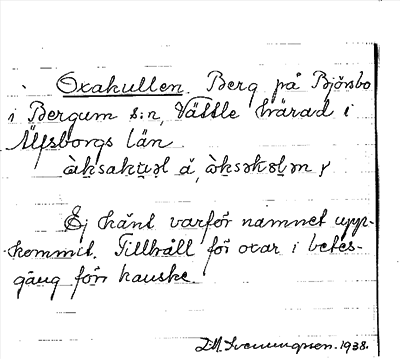 Oxakullen. Berg på Björsbo
i Bergum s:n, Vättle härad i
Älfsborgs län
Ej känt varför namnet upp-
kommit. Tillhåll för oxar i betes-
gång förr kanske.
1938.